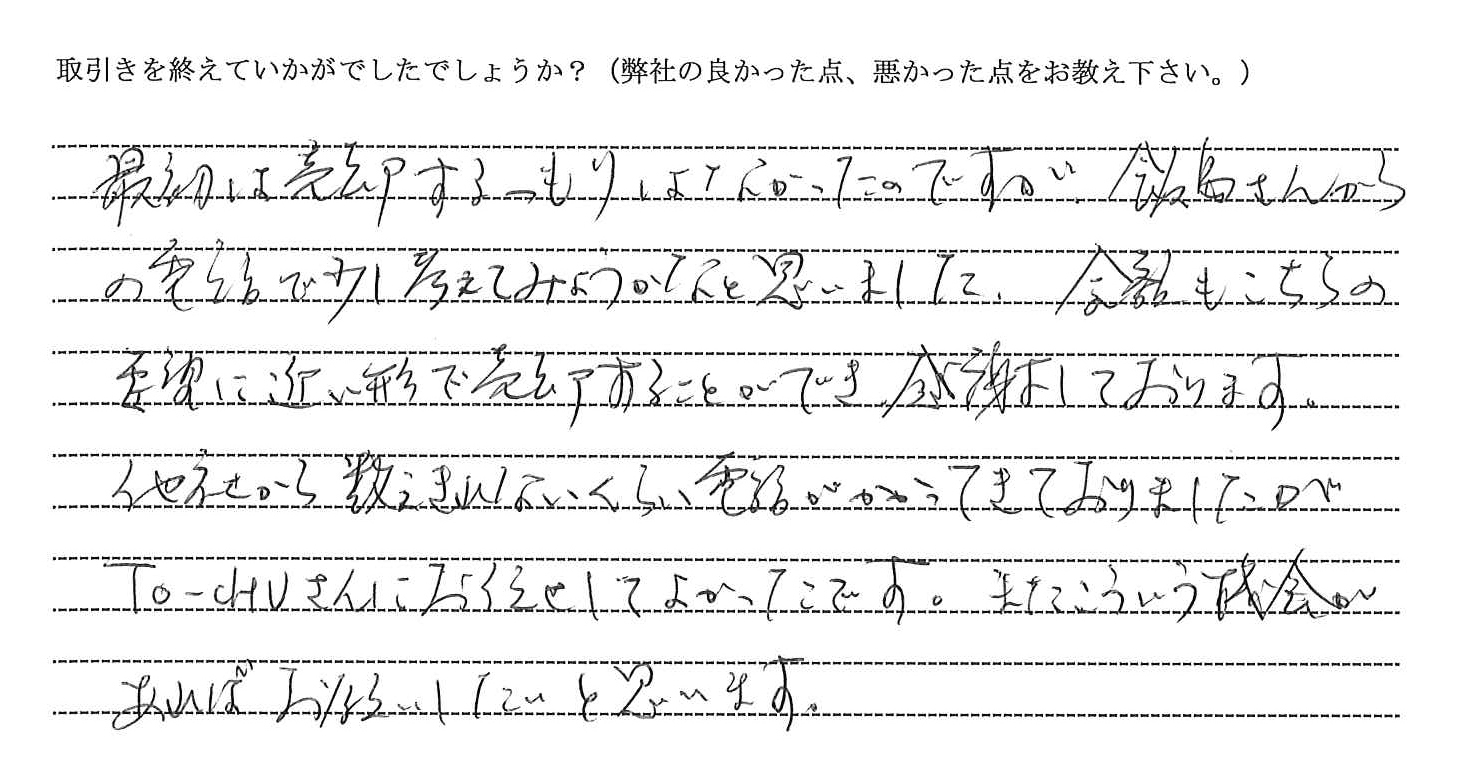 取引きを終えていかがでしたでしょうか？（弊社の良かった点、悪かった点をお教え下さい。）
最初は売却するつもりはなかったのですが、飯島さんから
の電話で少し考えてみようかなと思いました、金額もこちらの
要望に近い形で売却することができ感謝しております。
他社から数えきれないくらい電話がかかってきておりましたが
To-cHUさんにお任せしてよかったです。またこういう機会が
あればお願いしたいと思います。